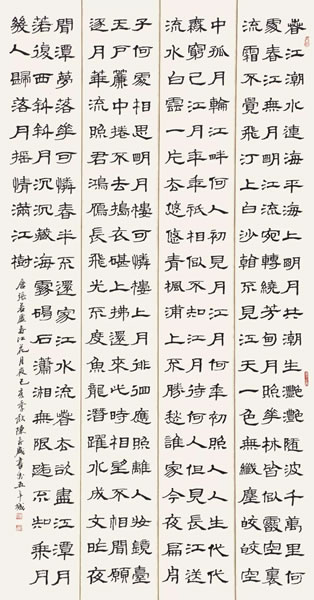 春江潮水連海平海上明月共潮生灩灩隨波千萬里何
處春江無月明江流宛轉繞芳甸月照花林皆似霰空裏
流霜不覺飛汀上白沙看不見江天一色無纖塵皎皎空
中孤月輪江畔何人初見月江月何年初照人人生代代
無窮已江月年年祇相似不知江月待何人但見長江送
流水白雲一片去悠悠青楓浦上不勝愁誰家今夜扁舟
子何處相思明月樓可憐樓上月徘徊應照離人妝鏡臺
玉戶簾中捲不去搗衣砧上拂還來此時相望不相聞願
逐月華流照君鴻雁長飛光不度魚龍潛躍水成文昨夜
閒潭夢落華可憐春半不還家江水流春去欲盡江潭
落月復西斜斜月沉沉藏海霧碣石瀟湘無限路不知乘月
幾人歸落月搖情滿江樹
唐張若虛春江花月夜己亥季秋陳